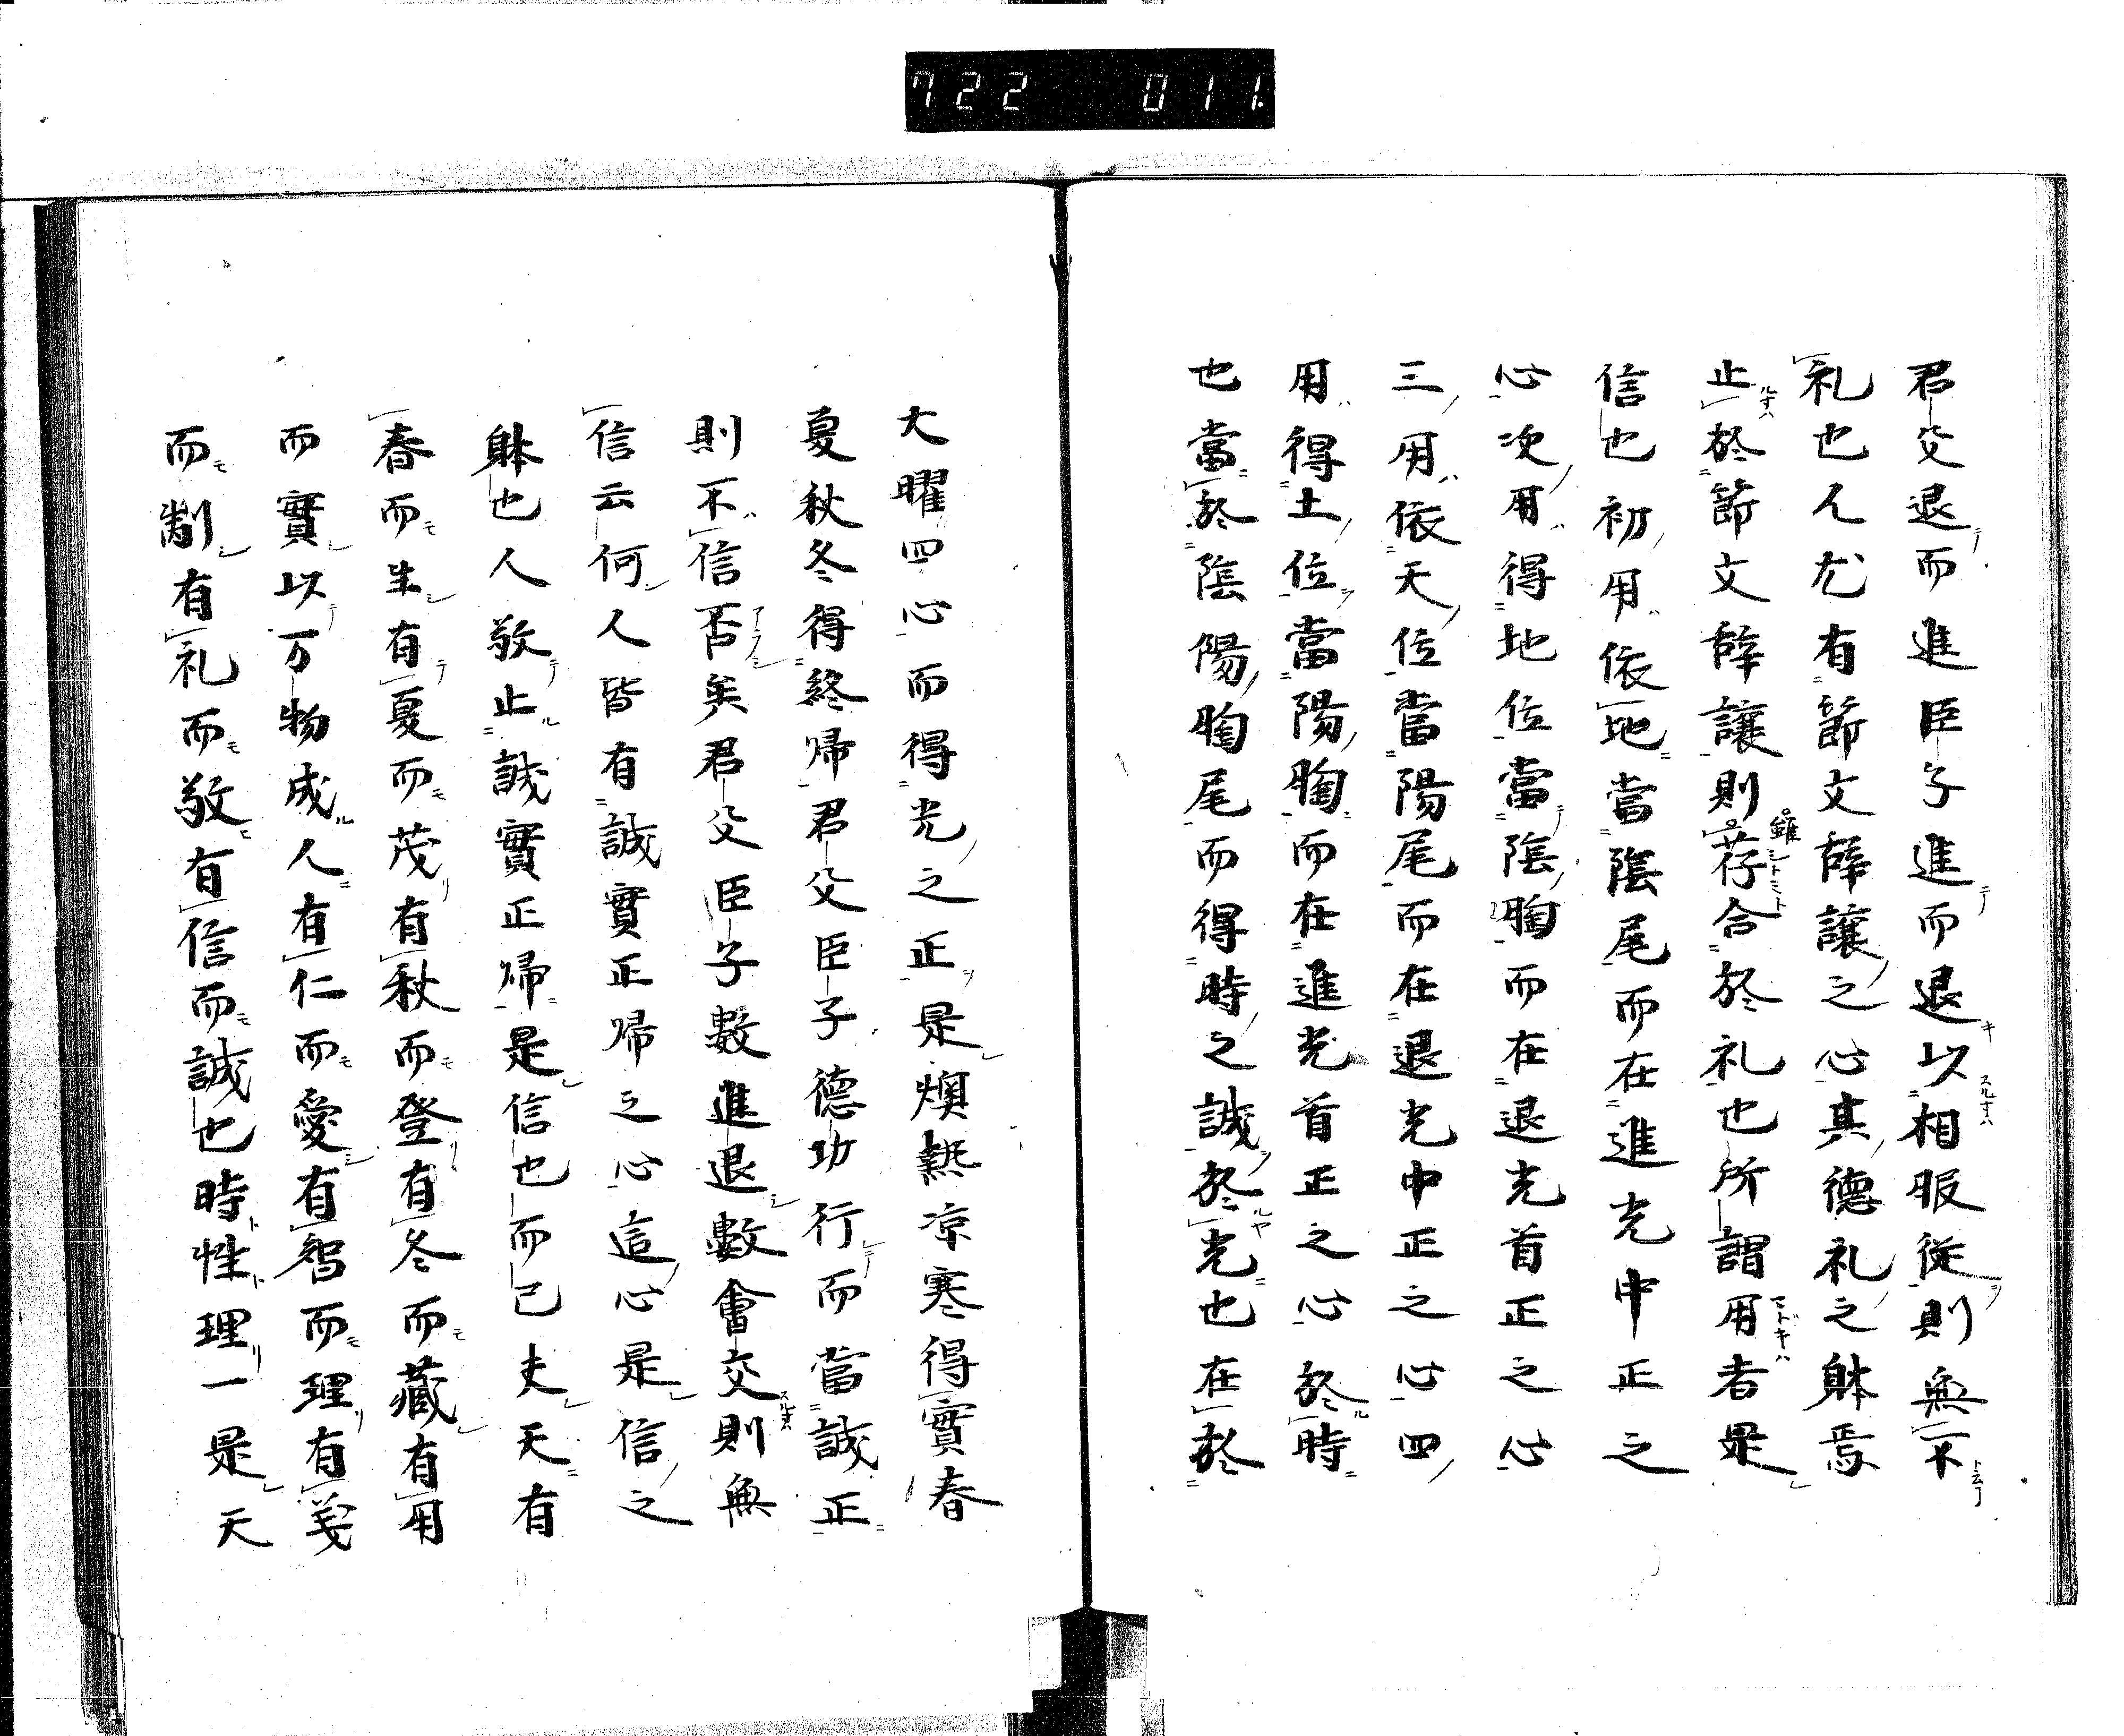 722 011
君父退而進臣子進而退以相服從則無不
礼也人尤有節文辭讓之心其德礼之躰焉
止於節文辭讓則荐合於礼也所謂用者是
信也初用依地當陰尾而在進光中正之
心次用得地位當陰胸而在退光首正之心
三用依天位當陽尾而在退光中正之心四
用得土位當陽胸而在進光首正之心於時
也當於陰陽胸尾而得時之誠於光也在於
大曜四心而得光之正是燠熱凉寒得實春
夏秋冬得終帰君父臣子德功行而當誠正
則不信否矣君父臣子數進退數會交則無
信云何人皆有誠實正帰之心這心是信之
躰也人敬止誠實正帰是信也而已夫天有
春而生有夏而茂有秋而登有冬而藏有用
而實以万物成人有仁而愛有智而理有義
而制有礼而敬有信而誠也時性理一是天